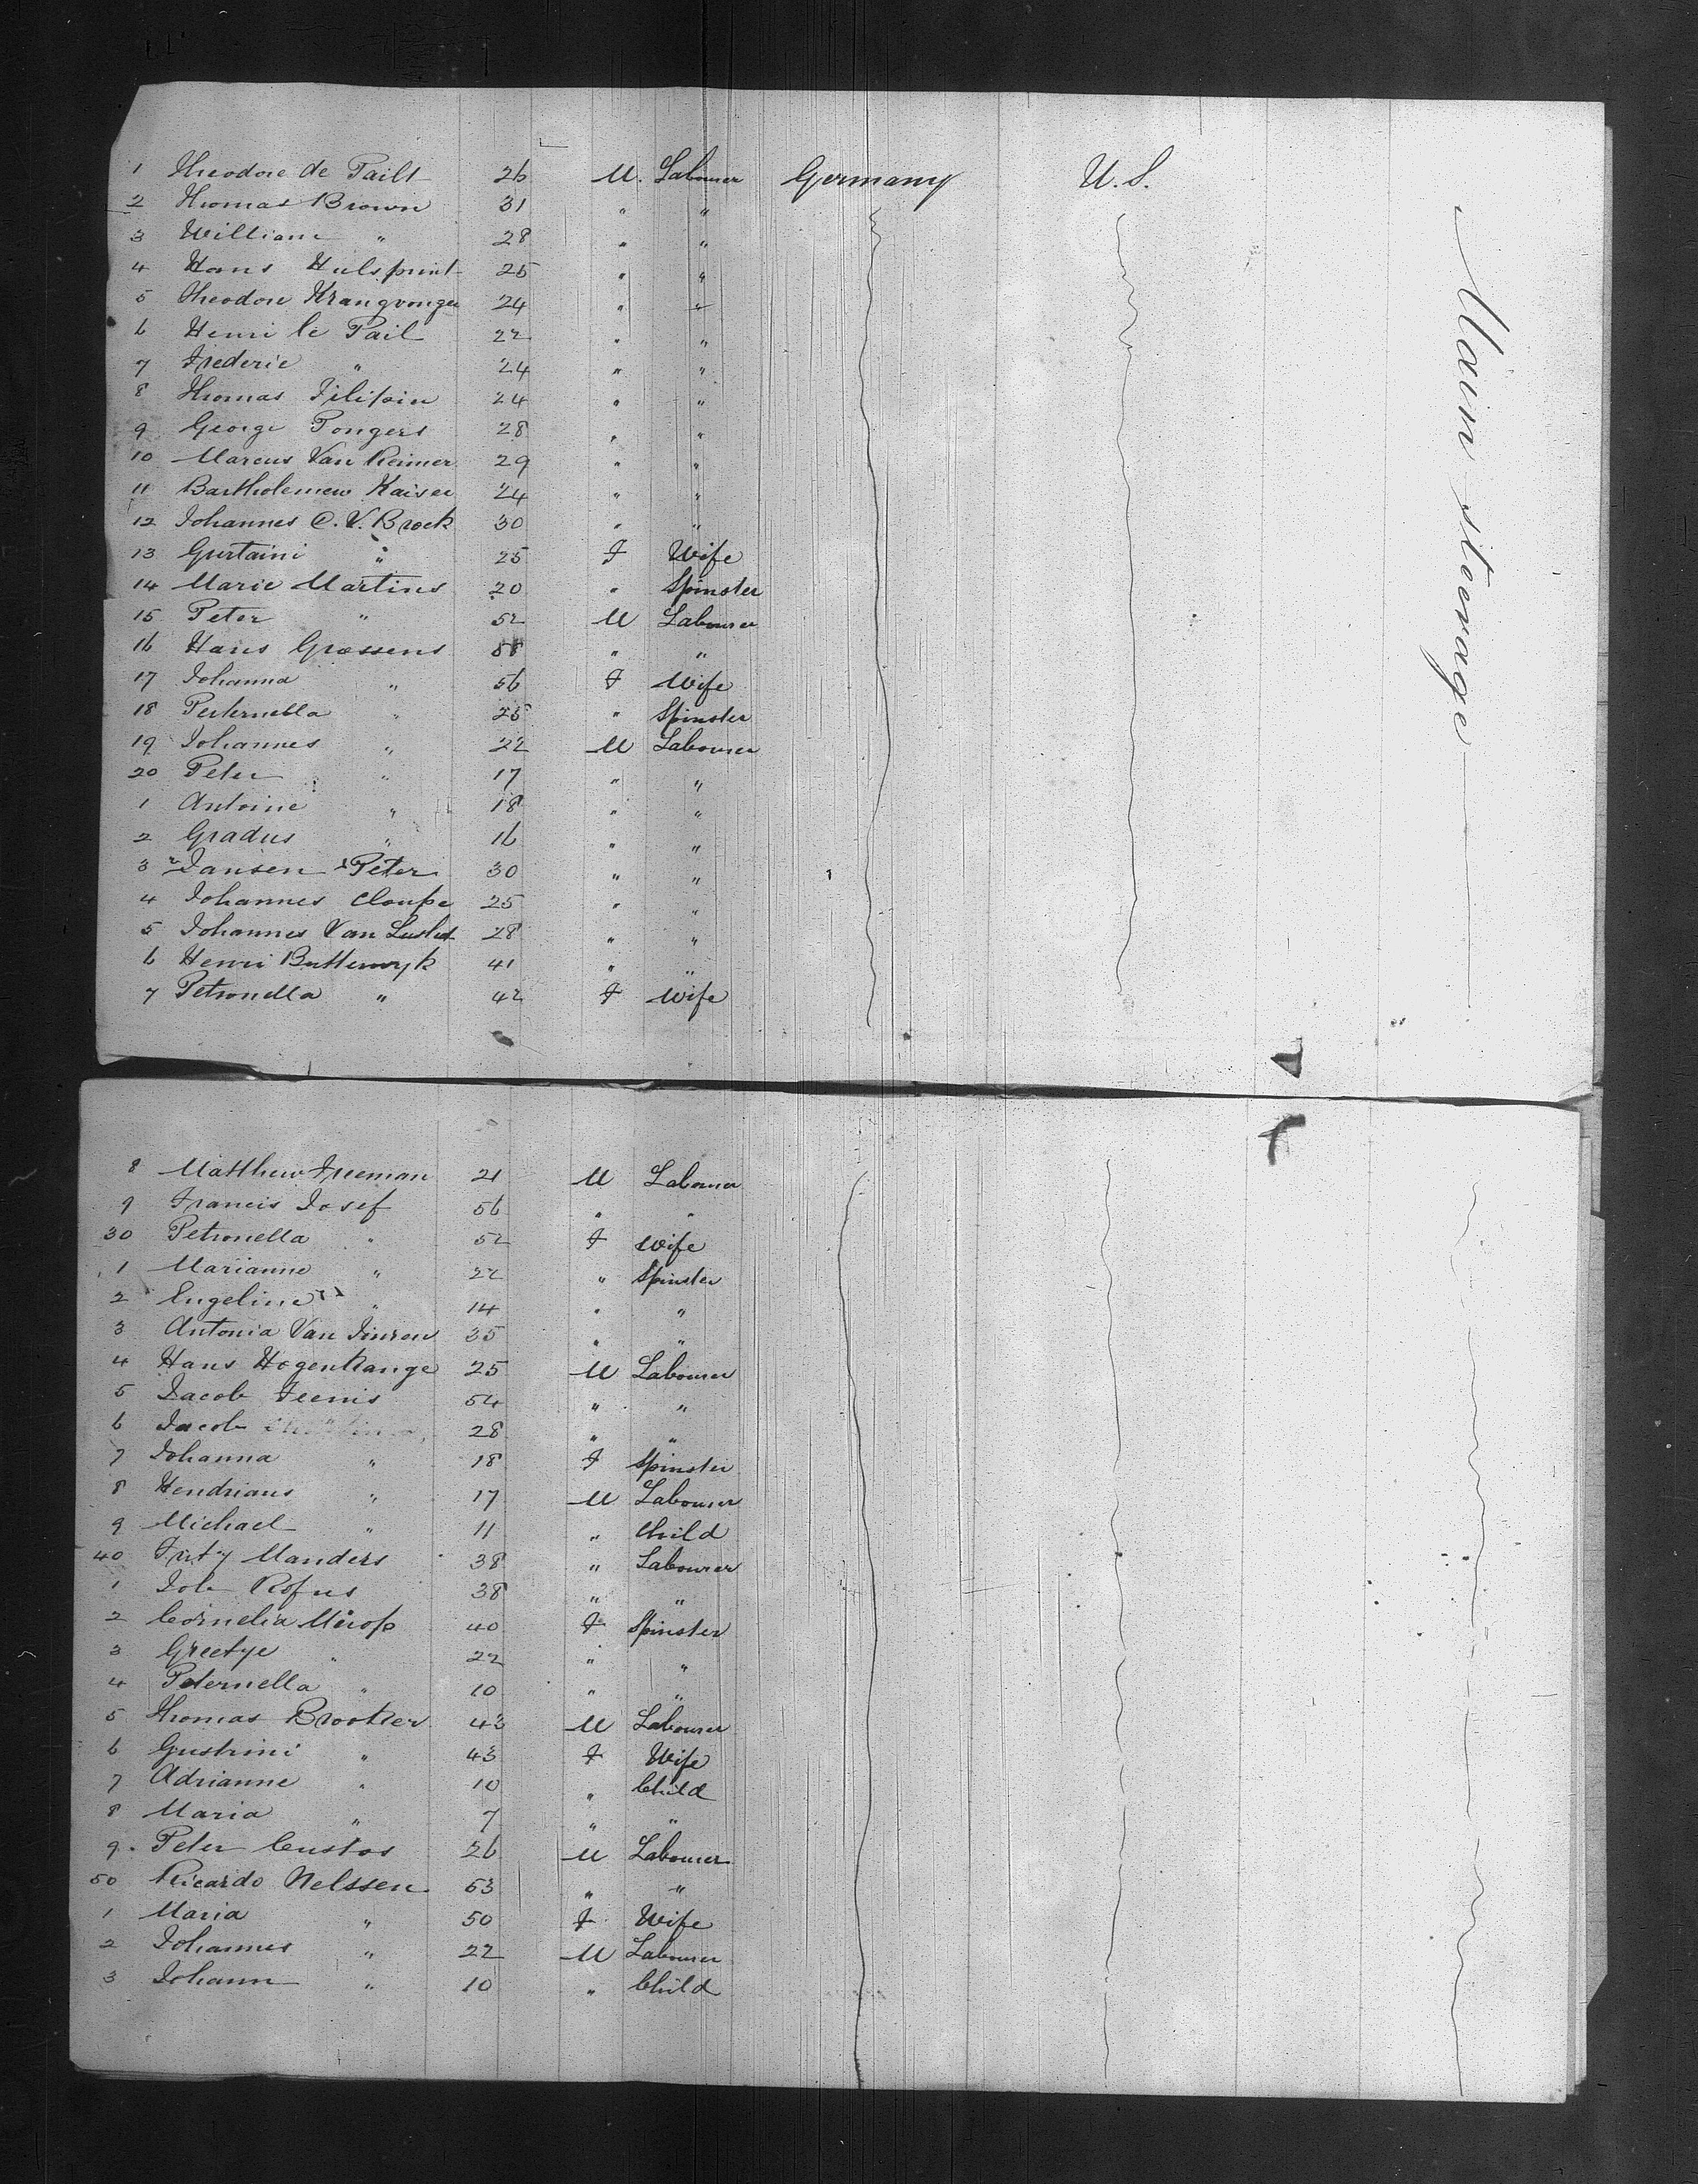 1 Theodore de Pailt 26 M. Labourer Germany U.S.
2 Thomas Brown 31 " "
3 William " 28 " "
4 Hans Hulsprint 25 " "
5 Theodore 24 " "
6 Henri le Pail 22 " "
7 Frederic " 24 " "
8 Thomas Filipin 24 " "
9 George Pongers 28 " "
10 Marcus Van Reimer 29 " "
11 Bartholemew Kaiser 24 " "
12 Johannes C. V. Brock 30 " "
13 Gurtaini " 25 F Wife
14 Marie Martins 20 " Spinster
15 Peter " 52 M Labourer
16 Hans Grossens 58 " "
17 Johanna " 56 F Wife
18 Perternella " 25 " Spinster
19 Johannes " 22 M Labourer
20 Peter " 17 " "
1 Antoine " 18 " "
2 Gradus " 16 " "
3 2 Jansen 1 Peter 30 " "
4 Johannes Cloupe 25 " "
5 Johannes Van 28 " "
6 Henri Butterwyk 41 " "
7 Petronella " 42 F Wife
Main steerage
8 Matthew Freeman 21 M Labourer
9 Francis Josef 56 " "
30 Petronella " 52 F Wife
1 Marianne " 22 " Spinster
2 Engeline " 14 " "
3 Antonia Van 35 " "
4 Hans Hogenkange 25 M Labourer
5 Jacob Feenis 54 " "
6 Jacob 28 " "
7 Johanna " 18 F Spinster
8 Hendrians " 17 M Labourer
9 Michael " 11 " Child
40 Manders 38 " Labourer
1 Job Rofus 38 " "
2 Cornelia 40 F Spinster
3 Greetye " 22 " "
4 Peternella " 10 " "
5 Thomas Brooker 43 M Labourer
6 Gustrini " 43 F Wife
7 Adrianne " 10 " Child
8 Maria " 7 " "
9 Peter Custos 26 M Labourer
50 Ricardo Nelssen 53 " "
1 Maria " 50 F Wife
2 Johannes " 22 M Labourer
3 Johann " 10 " Child